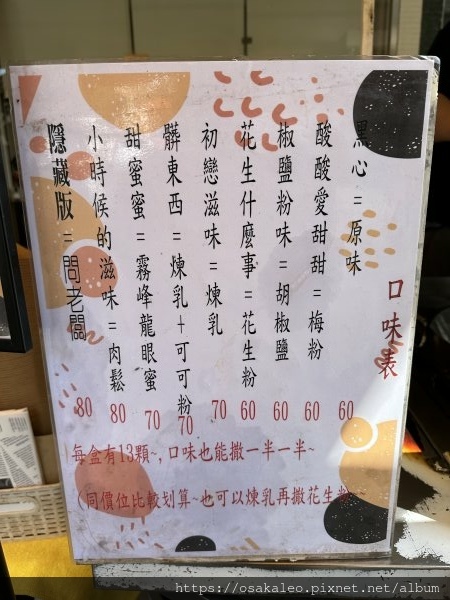 口味表
黑心=原味 60
酸酸愛甜甜=梅粉 60
椒鹽粉味=胡椒鹽 60
花生什麼事=花生粉 60
初戀滋味=煉乳 70
髒東西=煉乳+可可粉 70
甜蜜蜜=霧峰龍眼蜜 70
小時候的滋味=肉鬆 80
隱藏版=問老闆 80
每盒有13顆~,口味也能撒一半一半~
(同價位比較划算~也可以煉乳再撒花生粉
https://osakaleo.pixnet.net/album